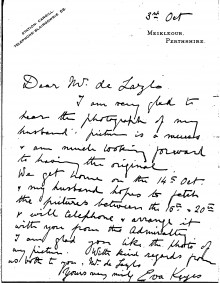 3rd Oct
MEIKLEOUR.
PERTHSHIRE.
Dear Mr de Laszlo
I am very glad to
hear the photograph of my
husband's picture is a success
& am much looking forward
to having the original
We get home on the 14th Oct
& my husband hopes to fetch
the pictures between the 15th & 20th
& will telephone & arrange it
with you from the Admiralty
I am glad you like the photo of
my picture. With kind regards from
us both to you & Mr de Laszlo
Yours very truly Eva Keyes